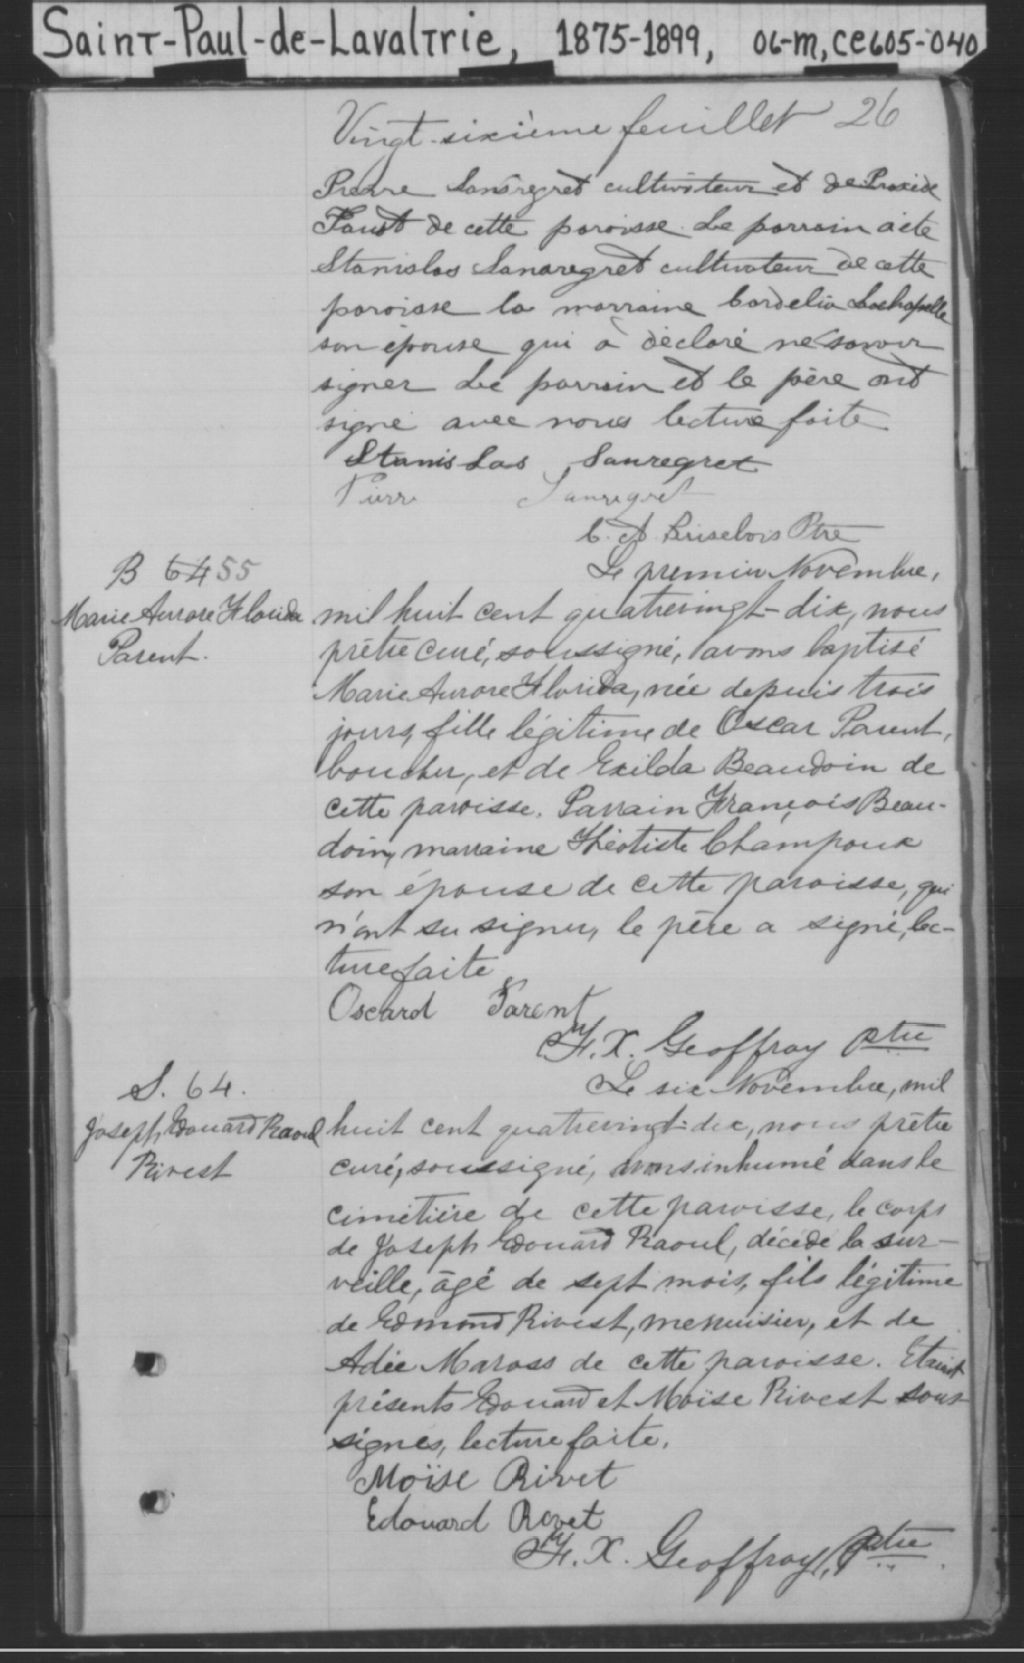 Saint-Paul-de-Lavaltrie, 1875-1899, 06-m, ce605-040
Vingt-sixième feuillet 26
Pierre Sansregret cultivateur et de Praxède
Faust de cette paroisse. Le parrain a été
Stanislas Sansregret cultivateur de cette
paroisse la marraine Cordelia Lachapelle
son épouse qui a déclaré ne savoir
signer Le parrain et le père ont
signé avec nous lecture faite
Stanislas Sanregret
Pierre Sanregret
Brisebois Ptre
B 64 55
Marie Aurore Florida
Parent.
Le premier Novembre,
mil huit cent quatrevingt-dix, nous
prêtre curé, soussigné, avons baptisé
Marie Aurore Florida, née depuis trois
jours, fille légitime de Oscar Parent,
boucher, et de Exilda Beaudoin de
cette paroisse. Parrain François Beau-
doin, marraine Théotiste Champoux
son épouse de cette paroisse, qui
n'ont su signer, le père a signé, lec-
ture faite
Oscard Parent
F. X. Geoffroy ptre
S. 64.
Joseph Edouard Raoul
Rivest
Le six Novembre, mil
huit cent quatrevingt-dix, nous prêtre
curé, soussigné, avons inhumé dans le
cimetière de cette paroisse, le corps
de Joseph Edouard Raoul, décédé la sur-
veille, âgé de sept mois, fils légitime
de Edmond Rivest, menuisier, et de
Adée Marass de cette paroisse. Etaient
présents Edouard et Moïse Rivest sous-
signés, lecture faite.
Moïse Rivet
Edouard Rivet
F. X. Geoffroy, Ptre